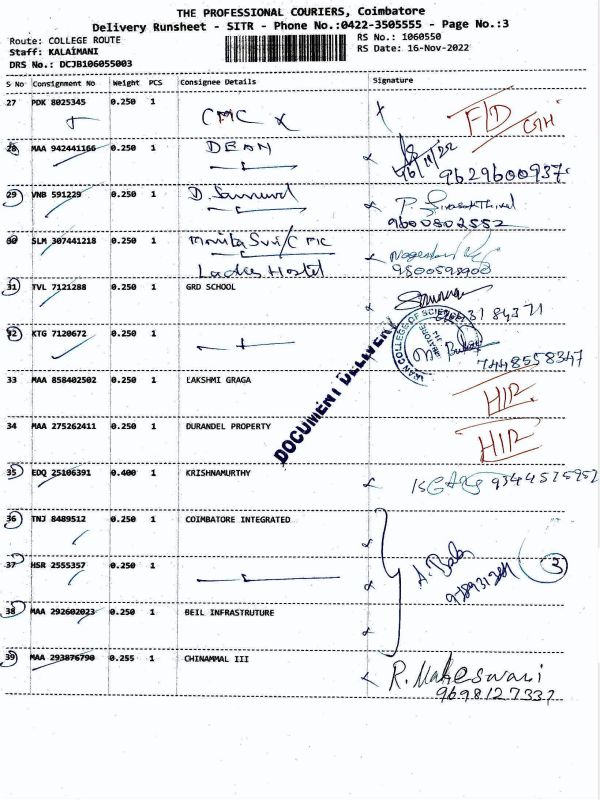 THE PROFESSIONAL COURIERS, Coimbatore
Delivery Runsheet - SITR - Phone No.:0422-3505555 - Page No.:3
Route: COLLEGE ROUTE RS No.: 1060550
Staff: KALAIMANI RS Date: 16-Nov-2022
DRS No.: DCJB106055003
S No Consignment No Weight PCS Consignee Details Signature
27 PDK 8025345 0.250 1 CMC F/D
28 MAA 942441166 0.250 1 DEAN 16/11/22 9629600937
29 VNB 591229 0.250 1 D. 9600802552
30 SLM 307441218 0.250 1 CMC
Ladies Hostel
31 TVL 7121288 0.250 1 GRD SCHOOL
32 KTG 7120672 0.250 1 7448558347
33 MAA 858402502 0.250 1 LAKSHMI GRAGA
34 MAA 275262411 0.250 1 DURANDEL PROPERTY
DOCUMENT DELIVERY
35 EDQ 25106391 0.400 1 KRISHNAMURTHY
36 TNJ 8489512 0.250 1 COIMBATORE INTEGRATED
37 HSR 2555357 0.250 1 3
38 MAA 292602023 0.250 1 BEIL INFRASTRUTURE
39 MAA 293876790 0.255 1 CHINAMMAL III R. Maheswari
9698127337